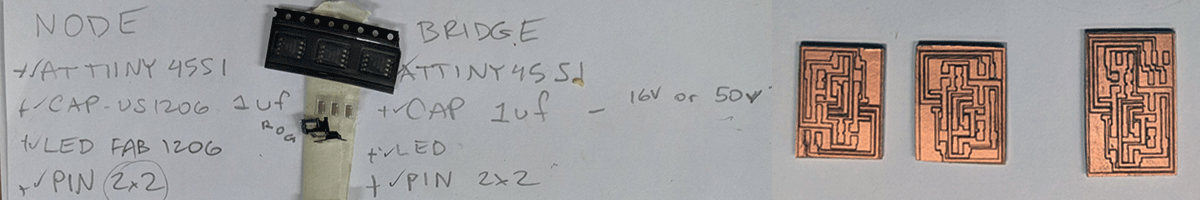 NODE
ATTIINY 45S1
CAP-US1206 1uf
LED FAB 1206
PIN 2x2
BRIDGE
ATTINY45 S
CAP 1uf - 16V or 50v
LED
PIN 2x2